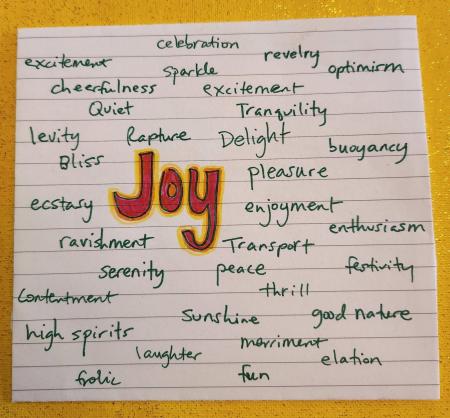 celebration
excitement sparkle revelry optimism
cheerfulness excitement
Quiet Tranquility
levity Rapture Delight buoyancy
Bliss Joy pleasure
ecstasy enjoyment
enthusiasm
ravishment Transport
serenity peace festivity
contentment thrill
sunshine good nature
high spirits merriment
laughter elation
frolic fun